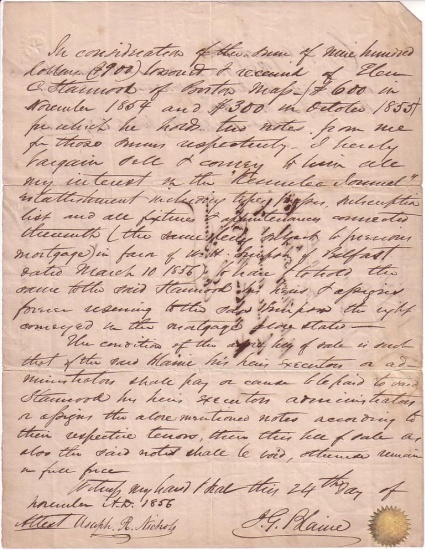 In consideration of the sum of nine hundred
dollars ($900) borrowed & received of Eben
C. Stanwood of Boston Mass— ($600 in
November 1854 and $300 in October 1855)
for which he holds two notes from me
for those sums respectively. I hereby
bargain sell & convey to him all
my interest in the "Kennebec Journal"
establishment including types, presses, subscription
list and all fixtures & appurtenances connected
therewith (the same being subject to previous
mortgage) in favor of W. H. Simpson of Belfast
dated March 10 1856) to have & to hold the
same to the said Stanwood his heirs & assigns
forever reserving to the said Simpson the right
conveyed in the mortgage above stated—
The condition of this bill of sale is such
that if the said Blaine his heirs executors or ad
ministrators shall pay or cause to be paid to said
Stanwood his heirs executors administrators
or assigns the above mentioned notes according to
their respective tenors, then this bill of sale as
also the said notes shall be void, otherwise remain
in full force
Witness my hand & seal this 24th day of
November A.D. 1856
Attest Asaph R. Nichols J. G. Blaine